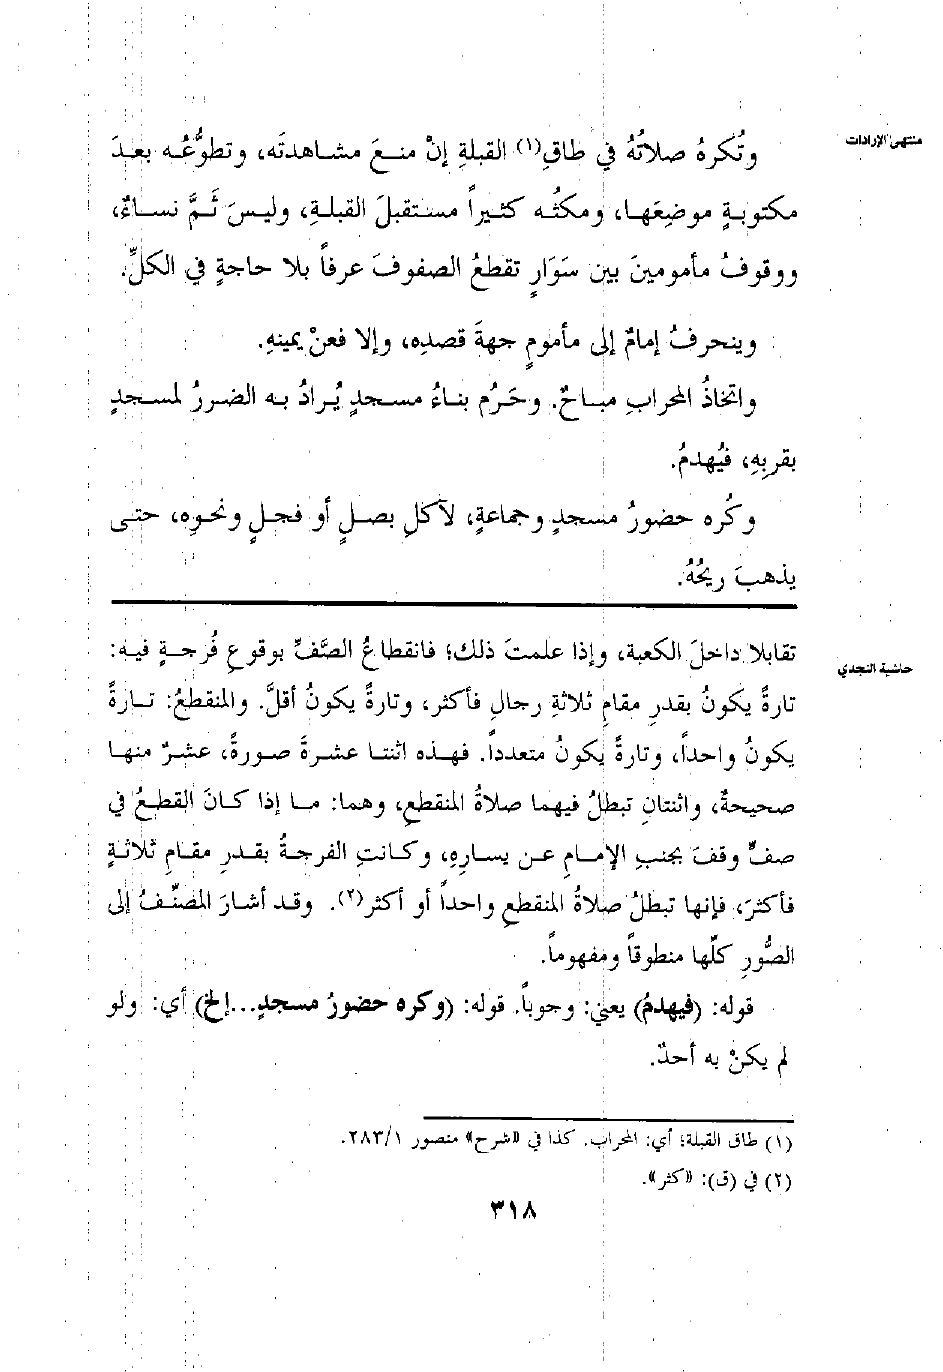 منتهى الإرادات
وتُكرهُ صلاتُهُ في طاقِ(١) القبلةِ إنْ منعَ مشاهدتَه، وتطوُّعُه بعدَ
مكتوبةٍ موضِعَها، ومكثُه كثيراً مستقبلَ القبلةِ، وليسَ ثَمَّ نساءٌ،
ووقوفُ مأمومينَ بين سَوَارٍ تقطعُ الصفوفَ عرفاً بلا حاجةٍ في الكلِّ.
وينحرفُ إمامٌ إلى مأمومٍ جهةَ قصدِه، وإلا فعنْ يمينهِ.
واتخاذُ المحرابِ مباحٌ. وحَرُم بناءُ مسجدٍ يُرادُ به الضررُ لمسجدٍ
بقربِهِ، فيُهدمُ.
وكُره حضورُ مسجدٍ وجماعةٍ، لآكلِ بصلٍ أو فجلٍ ونحوِه، حتى
يذهبَ ريحُهُ.
حاشية النجدي
تقابلا داخلَ الكعبة، وإذا علمتَ ذلك؛ فانقطاعُ الصَّفِّ بوقوعِ فُرجةٍ فيه:
تارةً يكونُ بقدرِ مقامِ ثلاثةِ رجالٍ فأكثر، وتارةً يكونُ أقلَّ. والمنقطعُ: تارةً
يكونُ واحداً، وتارةً يكونُ متعدداً. فهذه اثنتا عشرةَ صورةً، عشرٌ منها
صحيحةٌ، واثنتانِ تبطلُ فيهما صلاةُ المنقطعِ، وهما: ما إذا كانَ القطعُ في
صفٍّ وقفَ بجنبِ الإمامِ عن يسارِهِ، وكانتِ الفرجةُ بقدرِ مقامِ ثلاثةٍ
فأكثرَ، فإنها تبطلُ صلاةُ المنقطعِ واحداً أو أكثر(٢). وقد أشارَ المصنِّفُ إلى
الصُّورِ كلِّها منطوقاً ومفهوماً.
قوله: (فيهدمُ) يعني: وجوباً. قوله: (وكره حضورُ مسجدٍ...إلخ) أي: ولو
لم يكنْ به أحدٌ.
(١) طاق القبلة؛ أي: المحراب. كذا في «شرح» منصور ٢٨٣/١.
(٢) في (ق): «كثر».
٣١٨